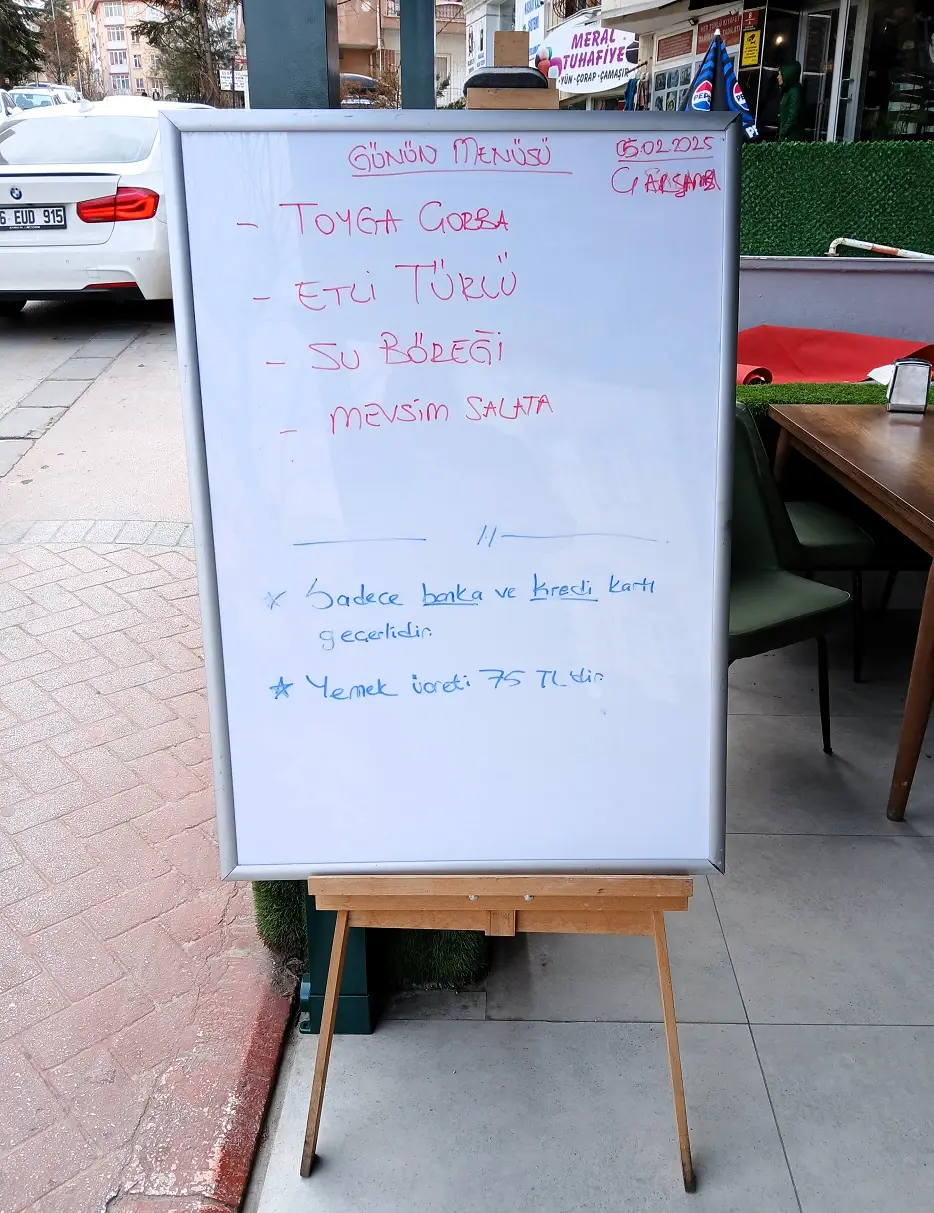 MERAL
TUHAFİYE
YÜN - ÇORAP - ÇAMAŞIR
PEPSI
6 EUD 915
GÜNÜN MENÜSÜ
05.02.2025
ÇARŞAMBA
- TOYGA ÇORBA
- ETLİ TÜRLÜ
- SU BÖREĞİ
- MEVSİM SALATA
//
* Sadece banka ve kredi kartı
geçerlidir.
* Yemek ücreti 75 TL'dir.